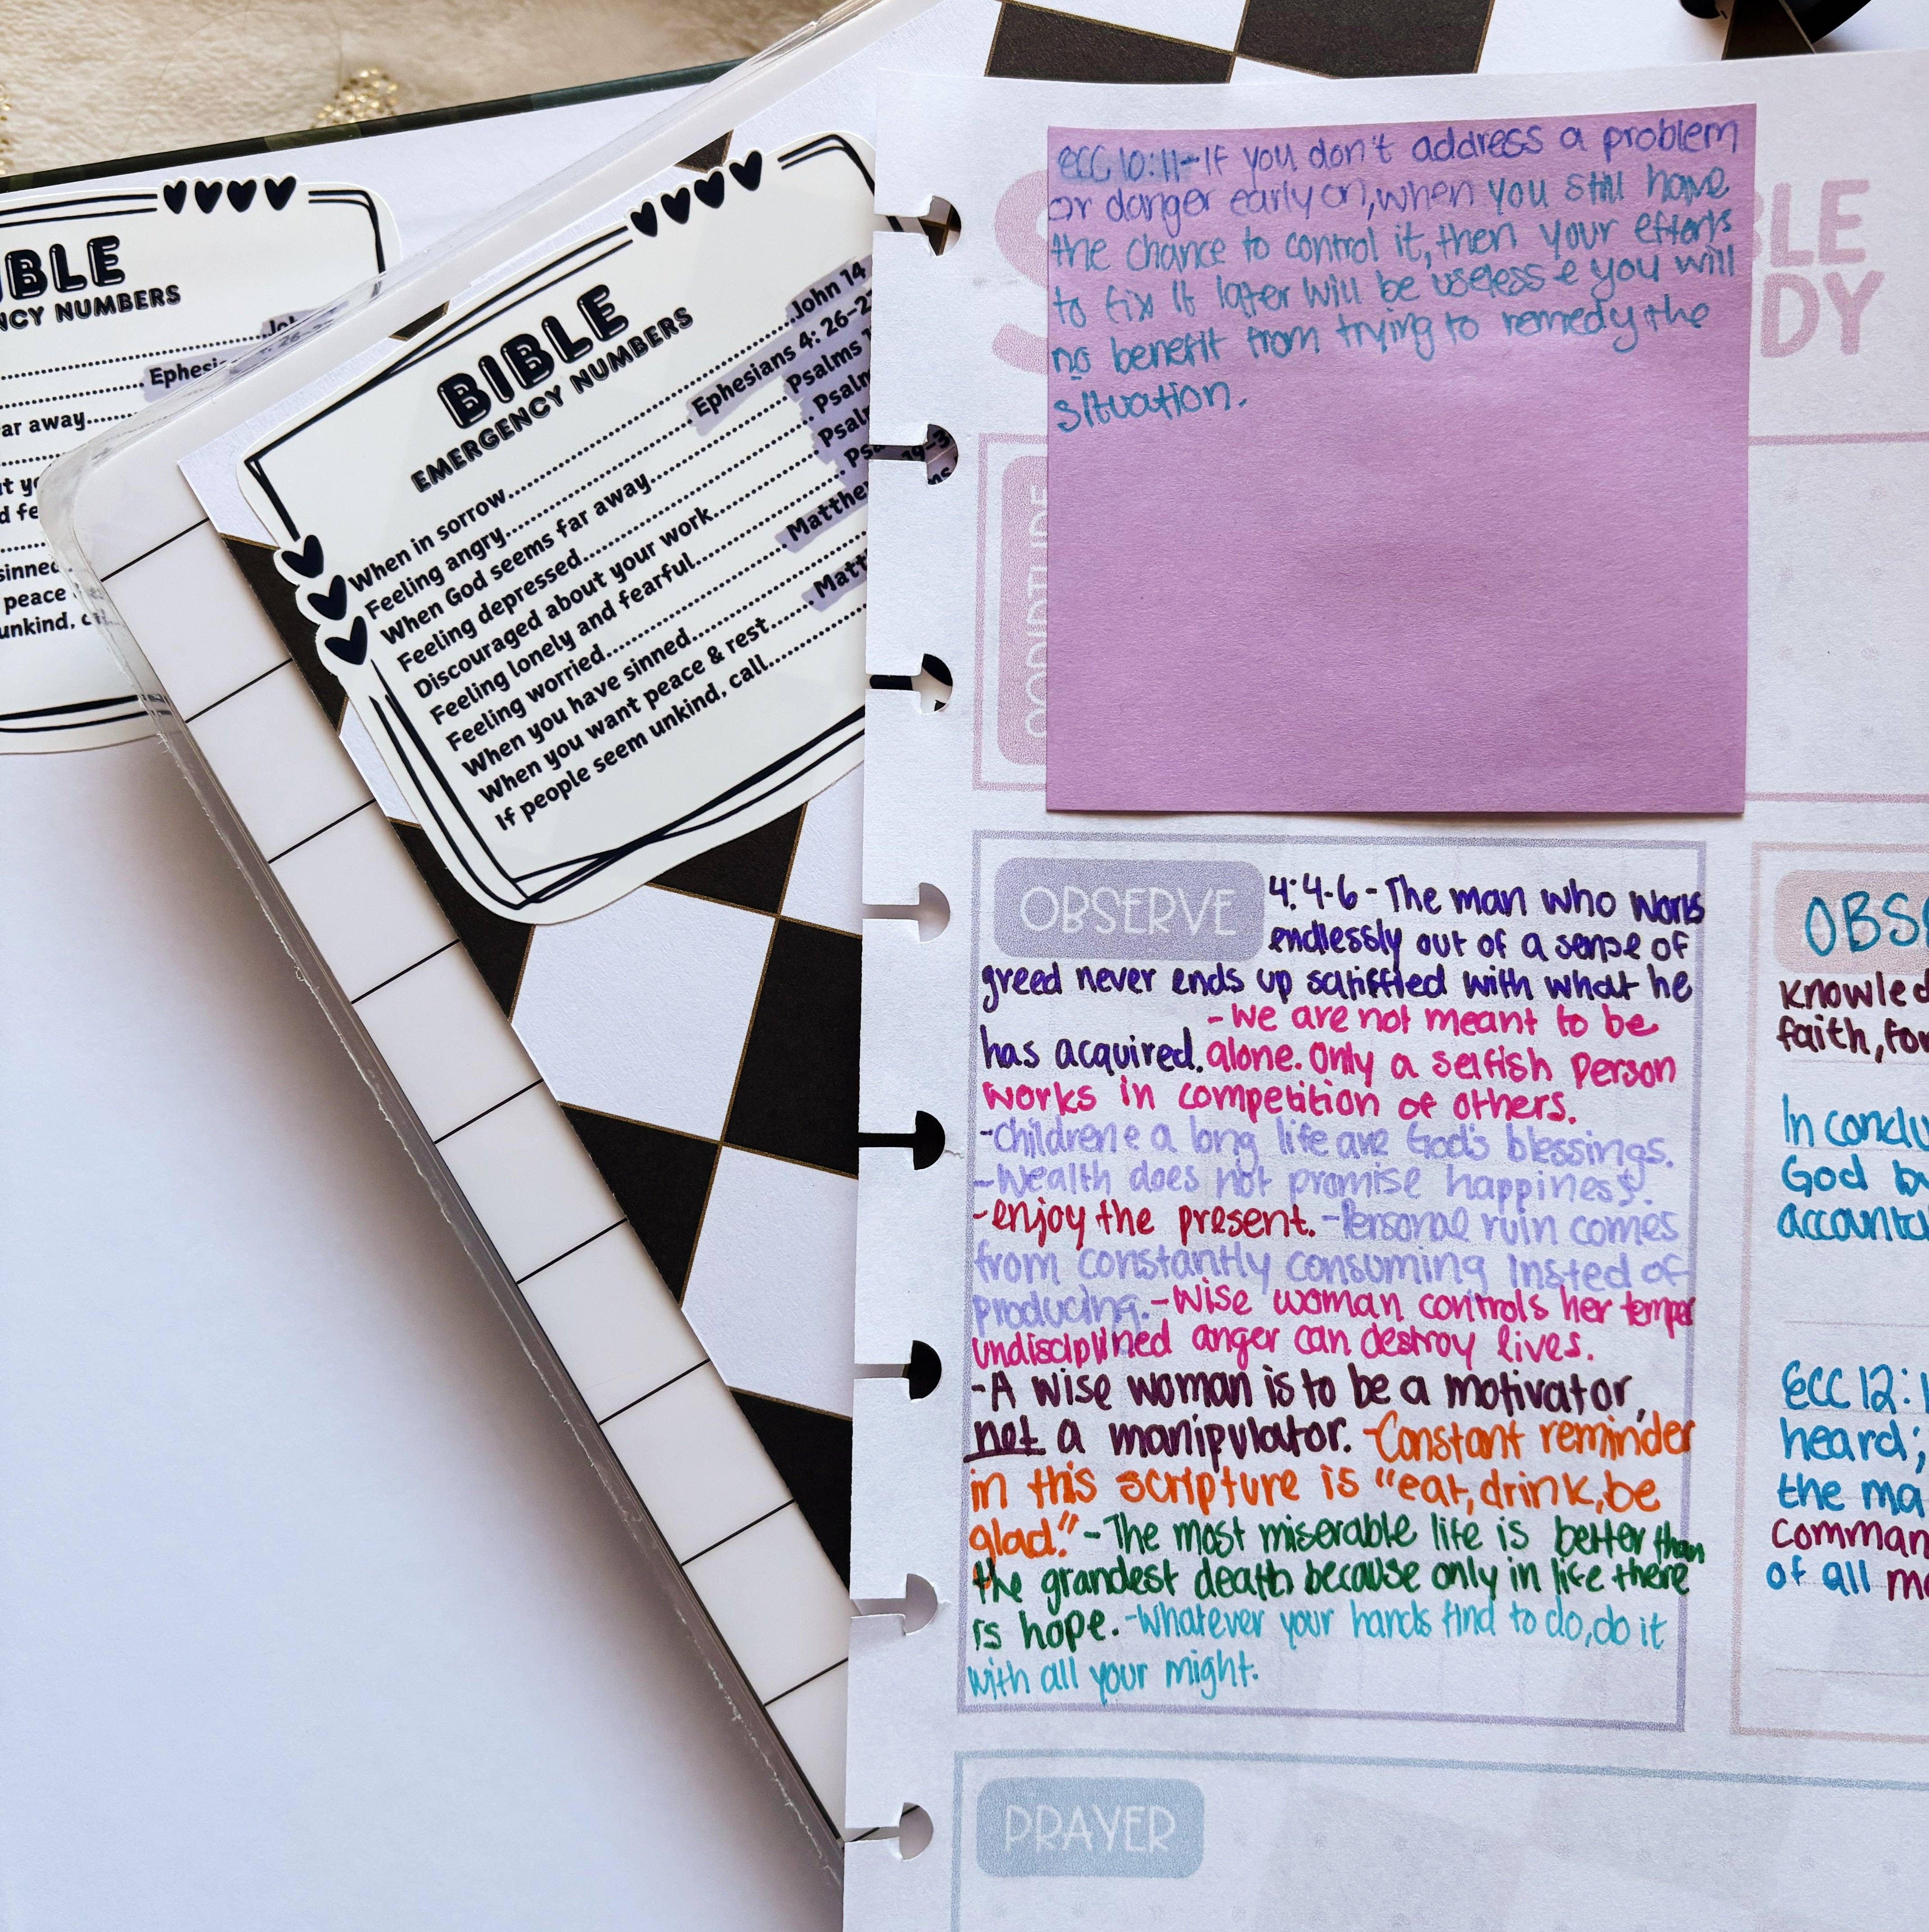 BLE
NCY NUMBERS
Ephesi
ar away
BIBLE
EMERGENCY NUMBERS
When in sorrow..........John 14
Feeling angry..........Ephesians 4: 26-2
When God seems far away..........Psalms
Feeling depressed..........
Discouraged about your work..........
Feeling lonely and fearful..........
Feeling worried..........Matthe
When you have sinned..........
When you want peace & rest..........Matt
If people seem unkind, call..........
peace
unkind, c
ECC 10:11-If you don't address a problem
or danger early on, when you still have
the chance to control it, then your efforts
to fix it later will be useless e you will
no benefit from trying to remedy the
situation.
BLE
DY
OBSERVE
4:4-6-The man who works
endlessly out of a sense of
greed never ends up satiffied with what he
has acquired.
-We are not meant to be
alone. Only a selfish person
works in competition of others.
-Children e a long life are God's blessings.
-Wealth does not promise happiness.
-enjoy the present. -Personal ruin comes
from constantly consuming insted of
producing. -Wise woman controls her temper
undisciplined anger can destroy lives.
-A wise woman is to be a motivator,
not a manipulator. -Constant reminder
in this scripture is "eat, drink, be
glad." -The most miserable life is better than
the grandest death because only in life there
is hope. -Whatever your hands find to do, do it
with all your might.
OBS
Knowled
faith, for
In conclu
God bu
accounta
ECC 12:1
heard;
the ma
comman
of all m
PRAYER